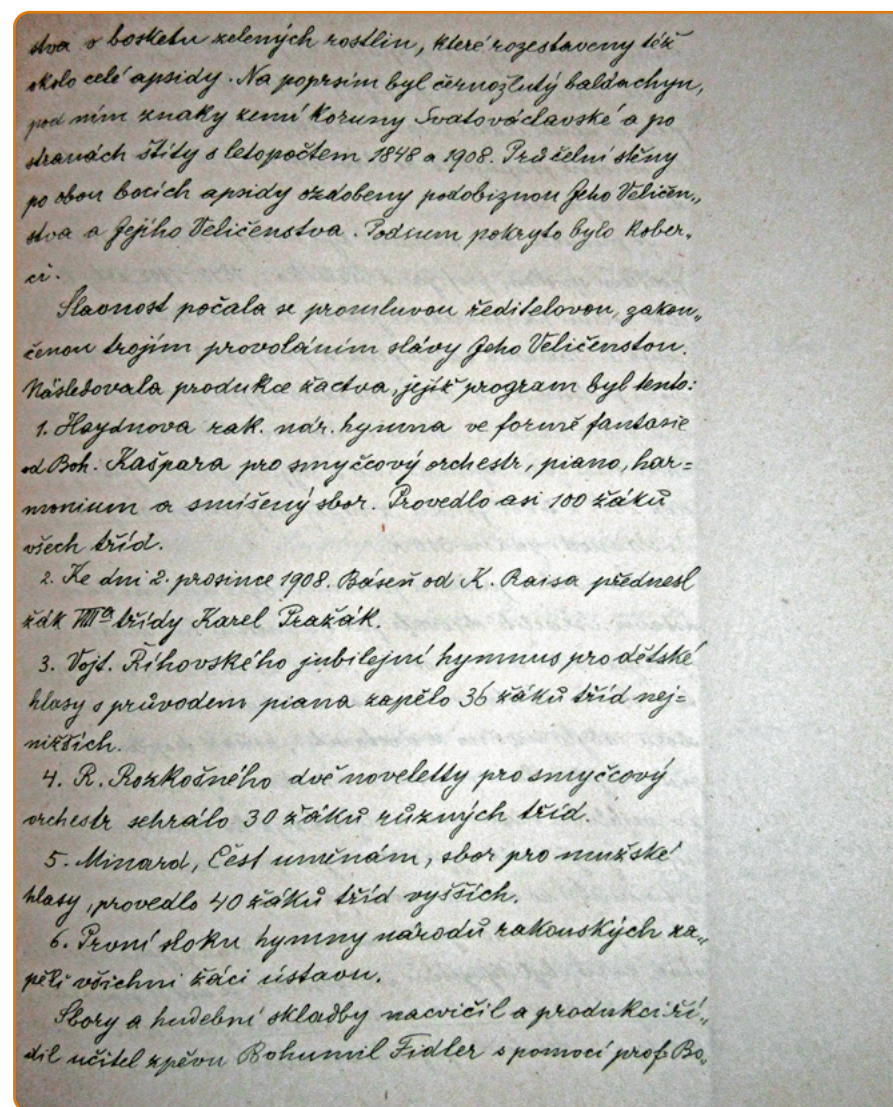 stva v bosketu zelených rostlin, které rozestaveny též
okolo celé apsidy. Na poprsím byl černožlutý baldachyn,
pod ním znaky zemí Koruny Svatováclavské a po
stranách štíty s letopočtem 1848 a 1908. Průčelní stěny
po obou bocích apsidy ozdobeny podobiznou Jeho Veličen„
stva a Jejího Veličenstva. Podium pokryto bylo kober„
ci.
Slavnost počala se promluvou ředitelovou, zakon„
čenou trojím provoláním slávy Jeho Veličenstvu.
Následovala produkce žactva, jejíž program byl tento:
1. Haydnova rak. nár. hymna ve formě fantasie
od Boh. Kašpara pro smyčcový orchestr, piano, har=
monium a smíšený sbor. Provedlo asi 100 žáků
všech tříd.
2. Ke dni 2. prosince 1908. Báseň od K. Raisa přednesl
žák třídy Karel Pražák.
3. Vojt. Říhovského jubilejní hymnus pro dětské
hlasy s průvodem piana zapělo 36 žáků tříd nej=
nižších.
4. R. Rozkošného dvě noveletty pro smyčcový
orchestr sehrálo 30 žáků různých tříd.
5. Minard, Čest uměnám, sbor pro mužské
hlasy, provedlo 40 žáků tříd vyšších.
6. První sloku hymny národů rakouských za„
pěli všichni žáci ústavu.
Sbory a hudební skladby nacvičil a produkci ří„
dil učitel zpěvu Bohumil Fidler s pomocí prof. Bo„